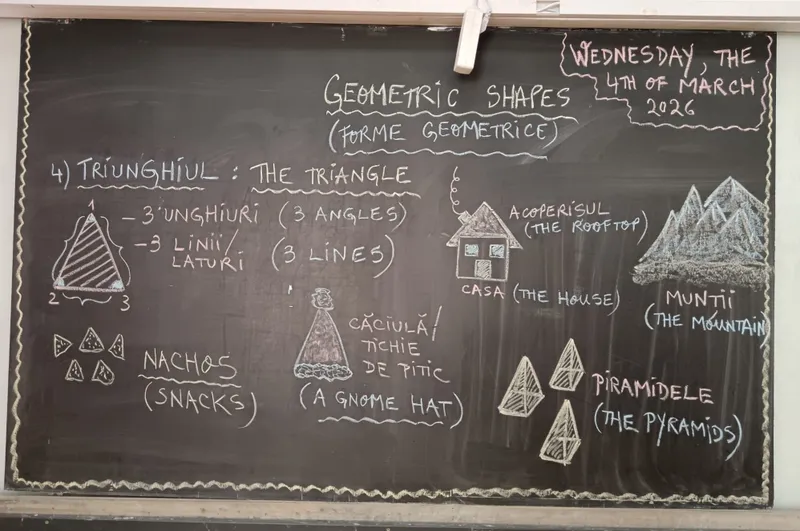 WEDNESDAY, THE
4TH OF MARCH
2026
GEOMETRIC SHAPES
(FORME GEOMETRICE)
4) TRIUNGHIUL : THE TRIANGLE
1
2
3
- 3 UNGHIURI (3 ANGLES)
- 3 LINII/
LATURI (3 LINES)
ACOPERISUL
(THE ROOFTOP)
CASA (THE HOUSE)
MUNTII
(THE MOUNTAIN)
NACHOS
(SNACKS)
CĂCIULĂ/
TICHIE
DE PITIC
(A GNOME HAT)
PIRAMIDELE
(THE PYRAMIDS)